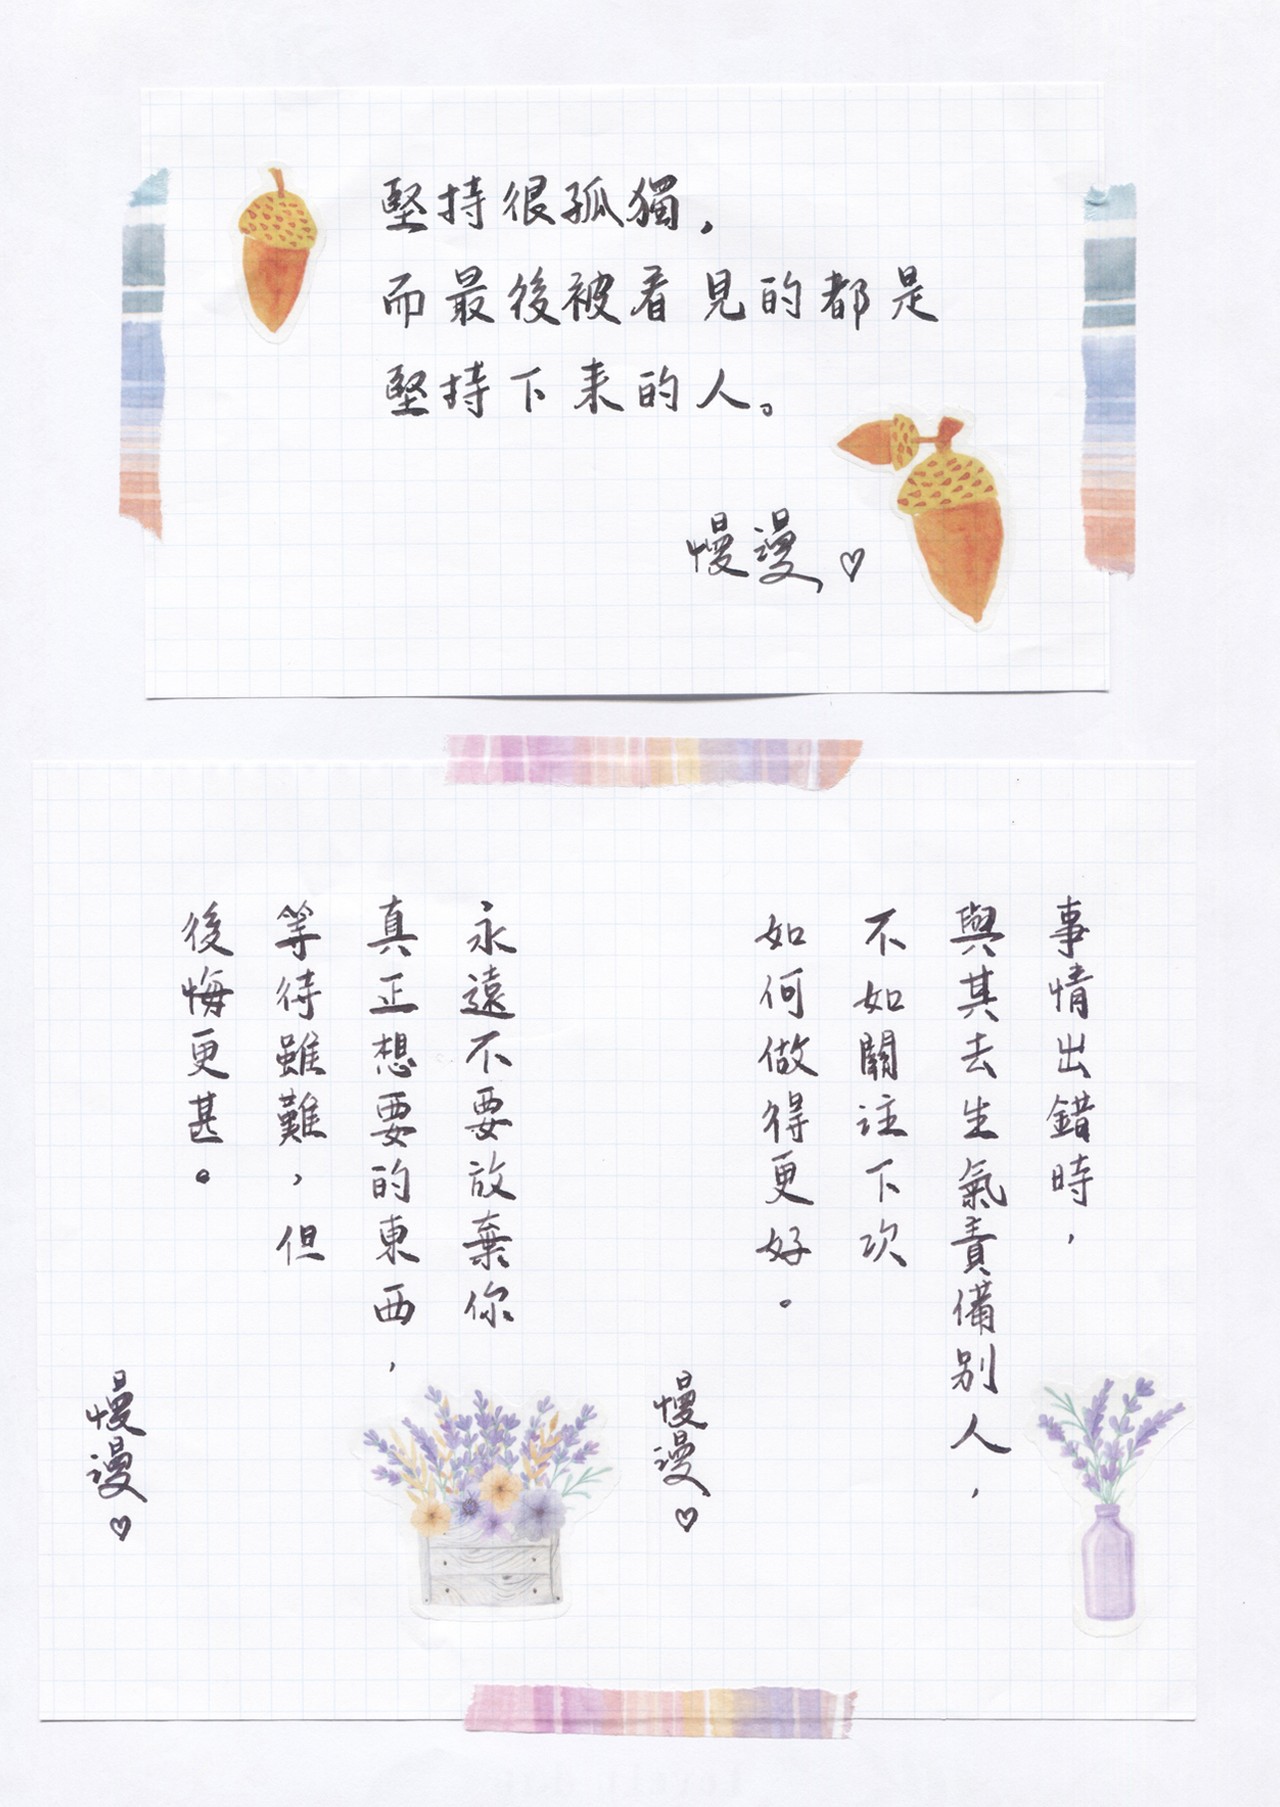 堅持很孤獨，
而最後被看見的都是
堅持下來的人。
慢漫♡
事情出錯時，
與其去生氣責備別人，
不如關注下次
如何做得更好。
慢漫♡
永遠不要放棄你
真正想要的東西，
等待雖難，但
後悔更甚。
慢漫♡